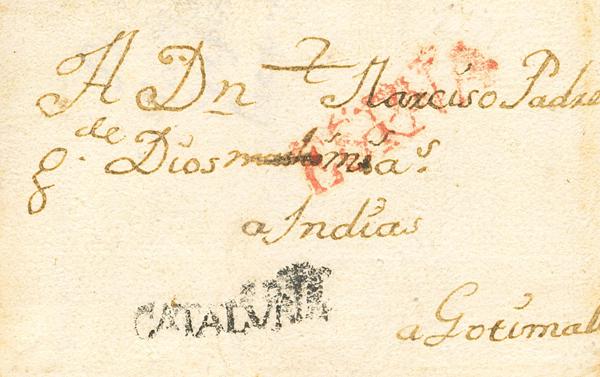 A Dn Narciso Padre
g.de Dios m.s a.s
a Indias
CATALUÑA
a Gotimal